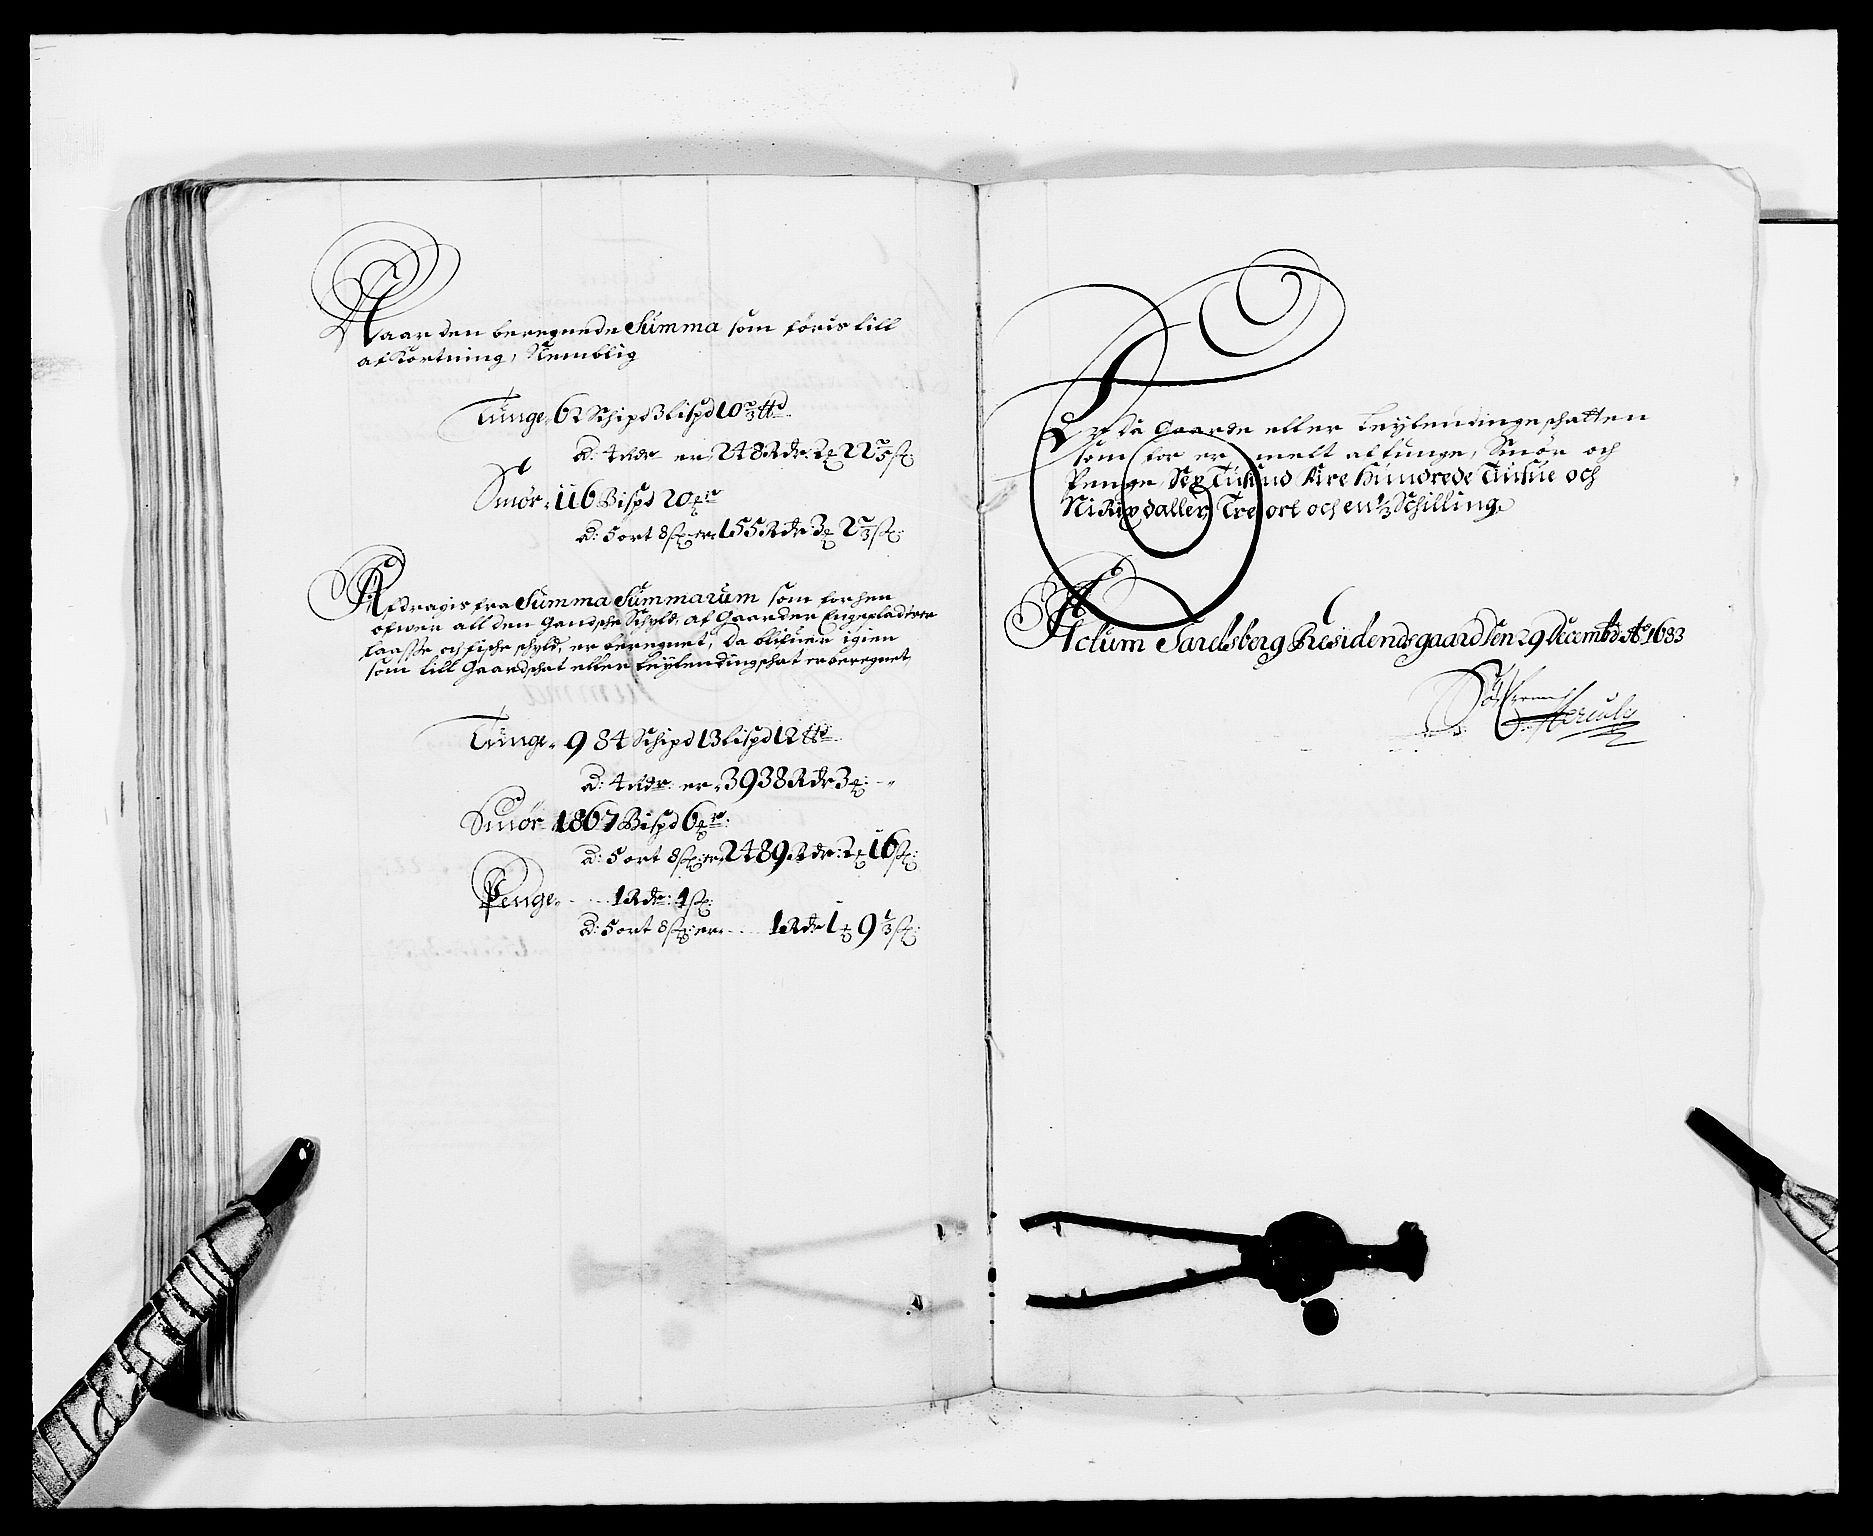 Naar den beregnede Summa som føris till
afkortning, Nemblig
Tunge 62 Schipd 3 lispd 10 2/3 ℔d
a: 4 Rdr er 248 Rdr: 2 ꝛ 22 2/5 ß:
Smør 116 Bispd 20 mr
a: 5 ort 8 ß: er 155 Rdr 3 ꝛ 2 2/3 ß:
Afdragis fra Summa Summarum som forhen
ofwer all den Gandsche Schyld, af Gaarder Engepladtzer
laasse och fische schyld, er beregnet, Da blifuer igien
som till Gaardschat eller Leylendingschat er beregnet
Tunge 984 Schipd 13 lispd 12 ℔d
a: 4 Rdr: er 3938 Rdr 3 ꝛ: -"
Smør 1867 Bispd 6 mr:
a: 5 ort 8 ß: er 2489 Rdr: 2 ꝛ 16 ß:
Penge 1 Rdr: 1 ß:
a: 5 ort 8 ß: er 1 Rdr 1 ꝛ 9 1/3 ß:
Er da Gaarde eller Leylendinge schatten
som for er melt af tunge, Smør och
Penge, Sex Tusind Fire Hundrede Tiufue och
Ni Rixdaller, Tre ort och en 1/3 Schilling
Actum Jarlsberg Residendsgaard Den 29 Decembr Ao 1683